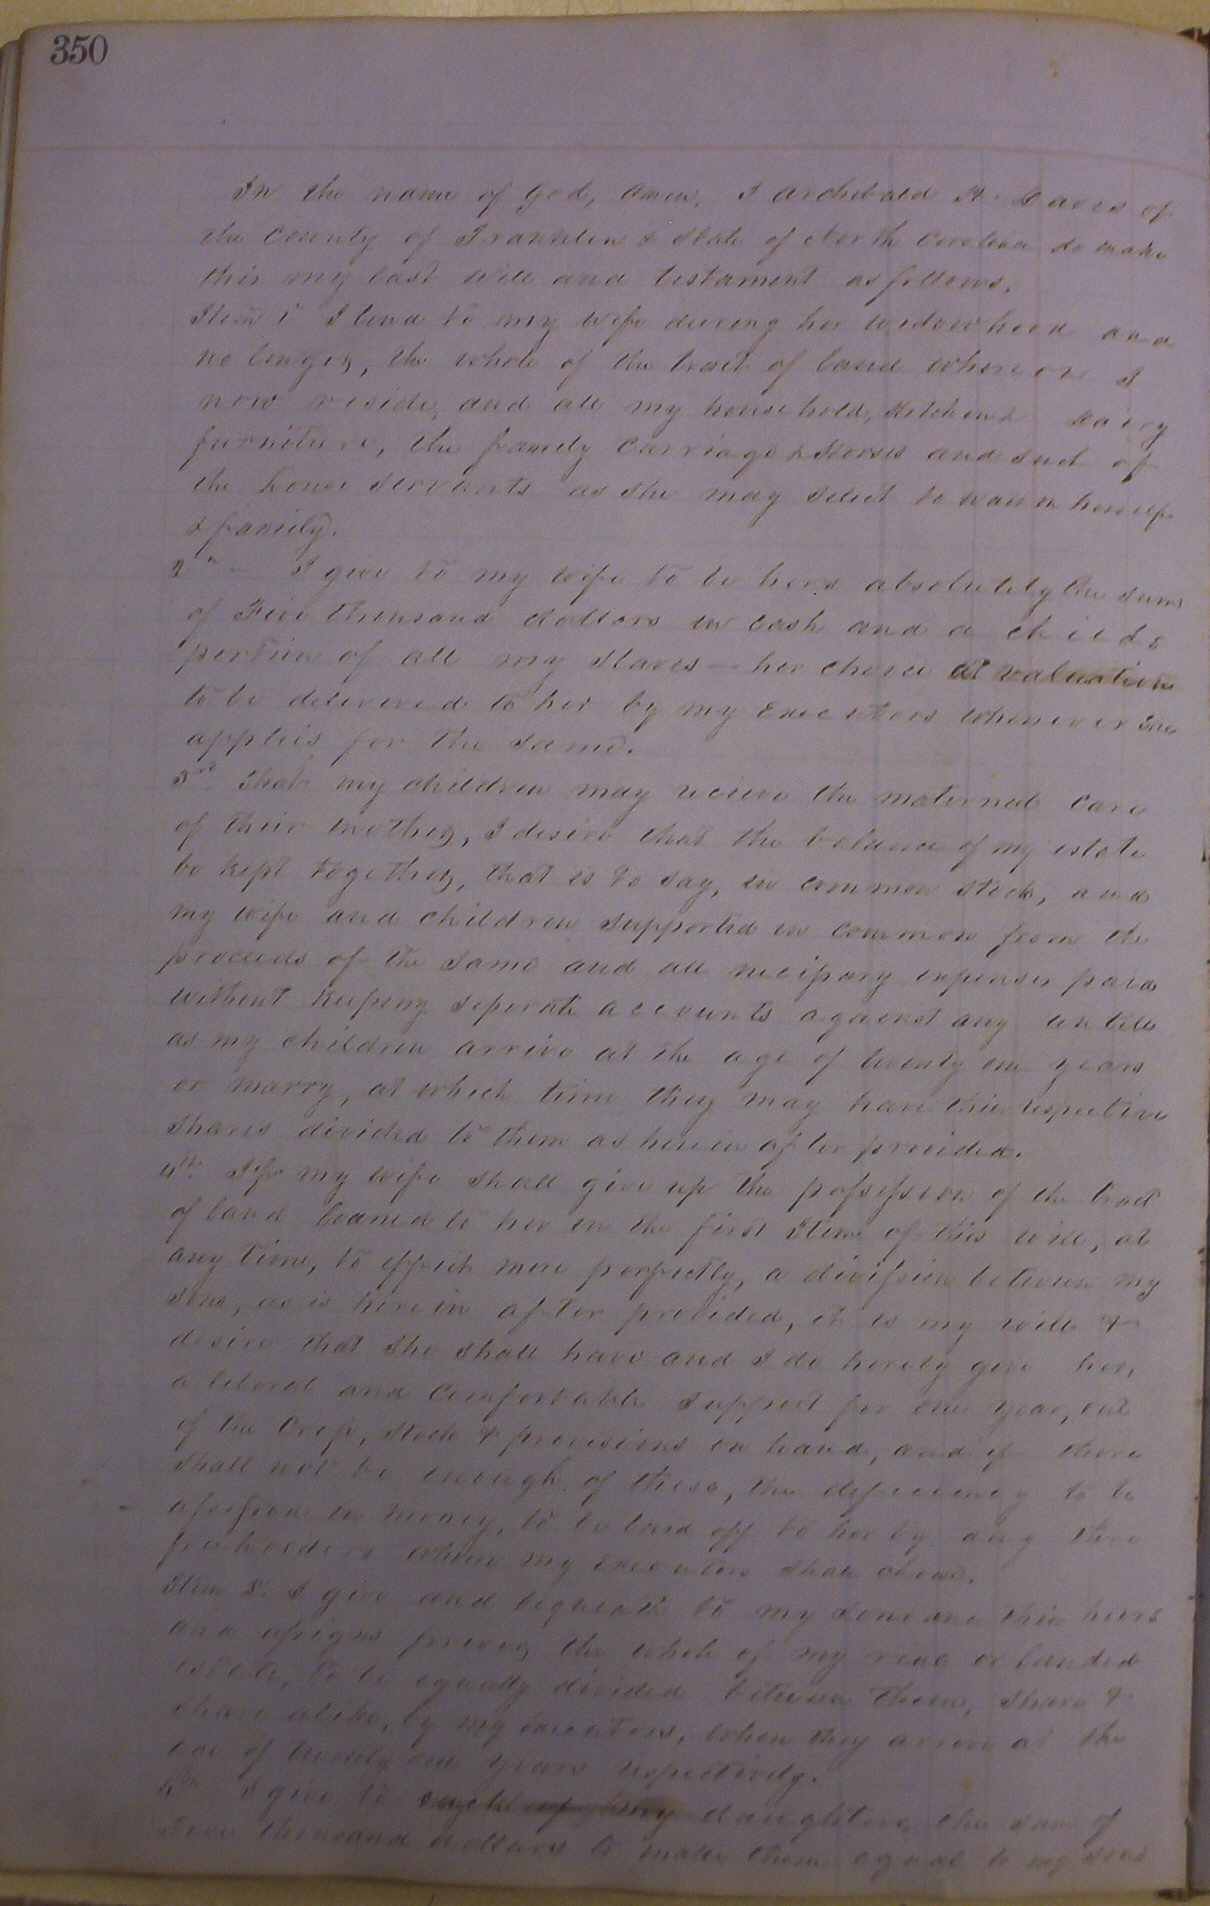 350
In the name of god, amen, I archibald H. Davis of
the County of Franklin & State of North Carolina do make
this my last will and testament as follows.
Item 1 I lend to my wife during her widowhood and
no longer, the whole of the tract of land whereon I
now reside, and all my household, Kitchen & Dairy
furniture, the family Carriage & Horses and such of
the house servants as she may select to wait on herself
& family.
2nd I give to my wife to be hers absolutely the sum
of Five thousand dollars in Cash and a childs
portion of all my slaves — her choice at valuation
to be delivered to her by my Executors whenever she
applies for the same.
3rd That my children may recieve the maternal care
of their mother, I desire that the balance of my estate
be kept together, that is to say, in common stock, and
my wife and children supported in common from the
proceeds of the same and all necessary expenses paid
without keeping seperate accounts against any untill
as my children arrive at the age of twenty one years
or marry, at which time they may have their respective
shares divided to them as herein after provided.
4th If my wife shall give up the possession of the tract
of land loaned to her in the first Item of this will, at
any time, to effect more perfectly, a division between my
sons, as is herein after provided, it is my will &
desire that she shall have and I do hereby give her,
a liberal and comfortable support for one year, out
of the Crops, stock & provisions on hand, and if there
shall not be enough of these, the deficiency to be
assessed in money, to be laid off to her by any three
freeholders whom my executors shall chose.
Item 5. I give and bequeath to my sons and their heirs
and assigns forever, the whole of my real or landed
estate, to be equally divided between them, share &
share alike, by my executors, when they arrive at the
age of twenty one years respectively.
6th I give to each of my daughters, the sum of
Five thousand dollars to make them equal to my sons